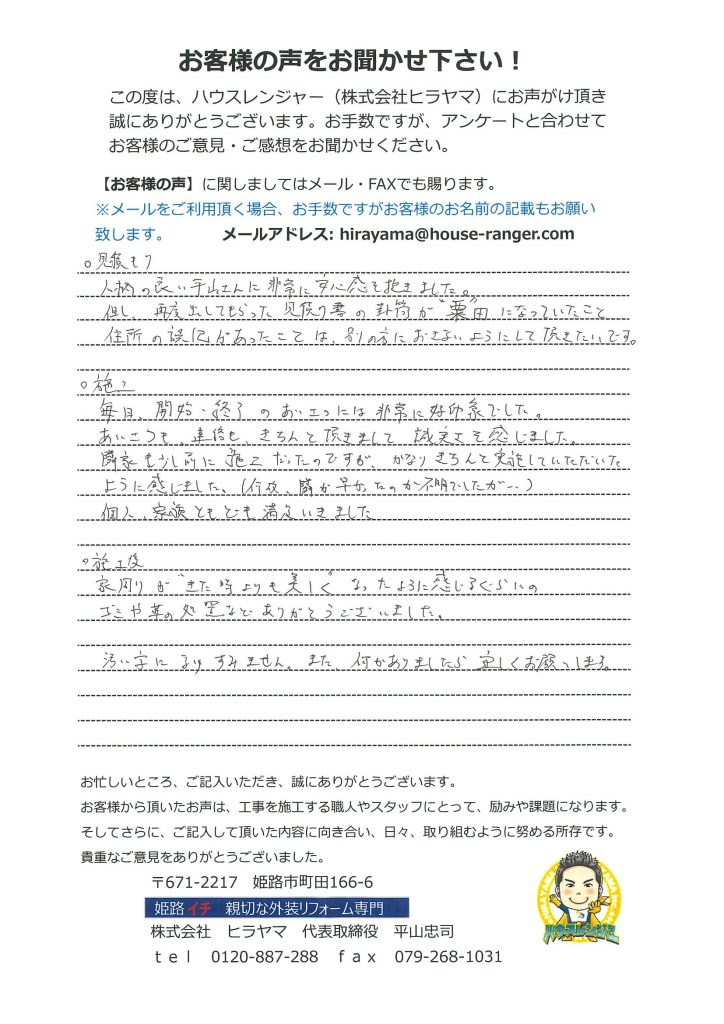 お客様の声をお聞かせ下さい！
この度は、ハウスレンジャー（株式会社ヒラヤマ）にお声がけ頂き
誠にありがとうございます。お手数ですが、アンケートと合わせて
お客様のご意見・ご感想をお聞かせください。
【お客様の声】に関しましてはメール・FAXでも賜ります。
※メールをご利用頂く場合、お手数ですがお客様のお名前の記載もお願い
致します。 メールアドレス: hirayama@house-ranger.com
○見積もり
人柄の良い平山さんに非常に安心感を抱きました。
但し、再度出してもらった見積り書の封筒が"粟田"になっていたこと
住所の誤記があったことは、別の方におきないようにして頂きたいです。
○施工
毎日、開始・終了のあいさつには非常に好印象でした。
あいさつも、連絡も、きちんと頂きまして誠実さを感じました。
隣家も少し前に施工だったのですが、かなりきちんと実施していただいた
ように感じました、(行政、隣が早かったのか不明でしたが…)
個人、家族ともとても満足いきました
○施工後
家周りが"きた時よりも美しく"なったように感じるぐらいの
ゴミや草の処置などありがとうございました。
汚い字になり すみません。また、何かありましたら宜しくお願いします。
お忙しいところ、ご記入いただき、誠にありがとうございます。
お客様から頂いたお声は、工事を施工する職人やスタッフにとって、励みや課題になります。
そしてさらに、ご記入して頂いた内容に向き合い、日々、取り組むように努める所存です。
貴重なご意見をありがとうございました。
〒671-2217 姫路市町田166-6
姫路イチ 親切な外装リフォーム専門
株式会社 ヒラヤマ 代表取締役 平山忠司
ｔｅｌ 0120-887-288 ｆａｘ 079-268-1031
ハウスレンジャー